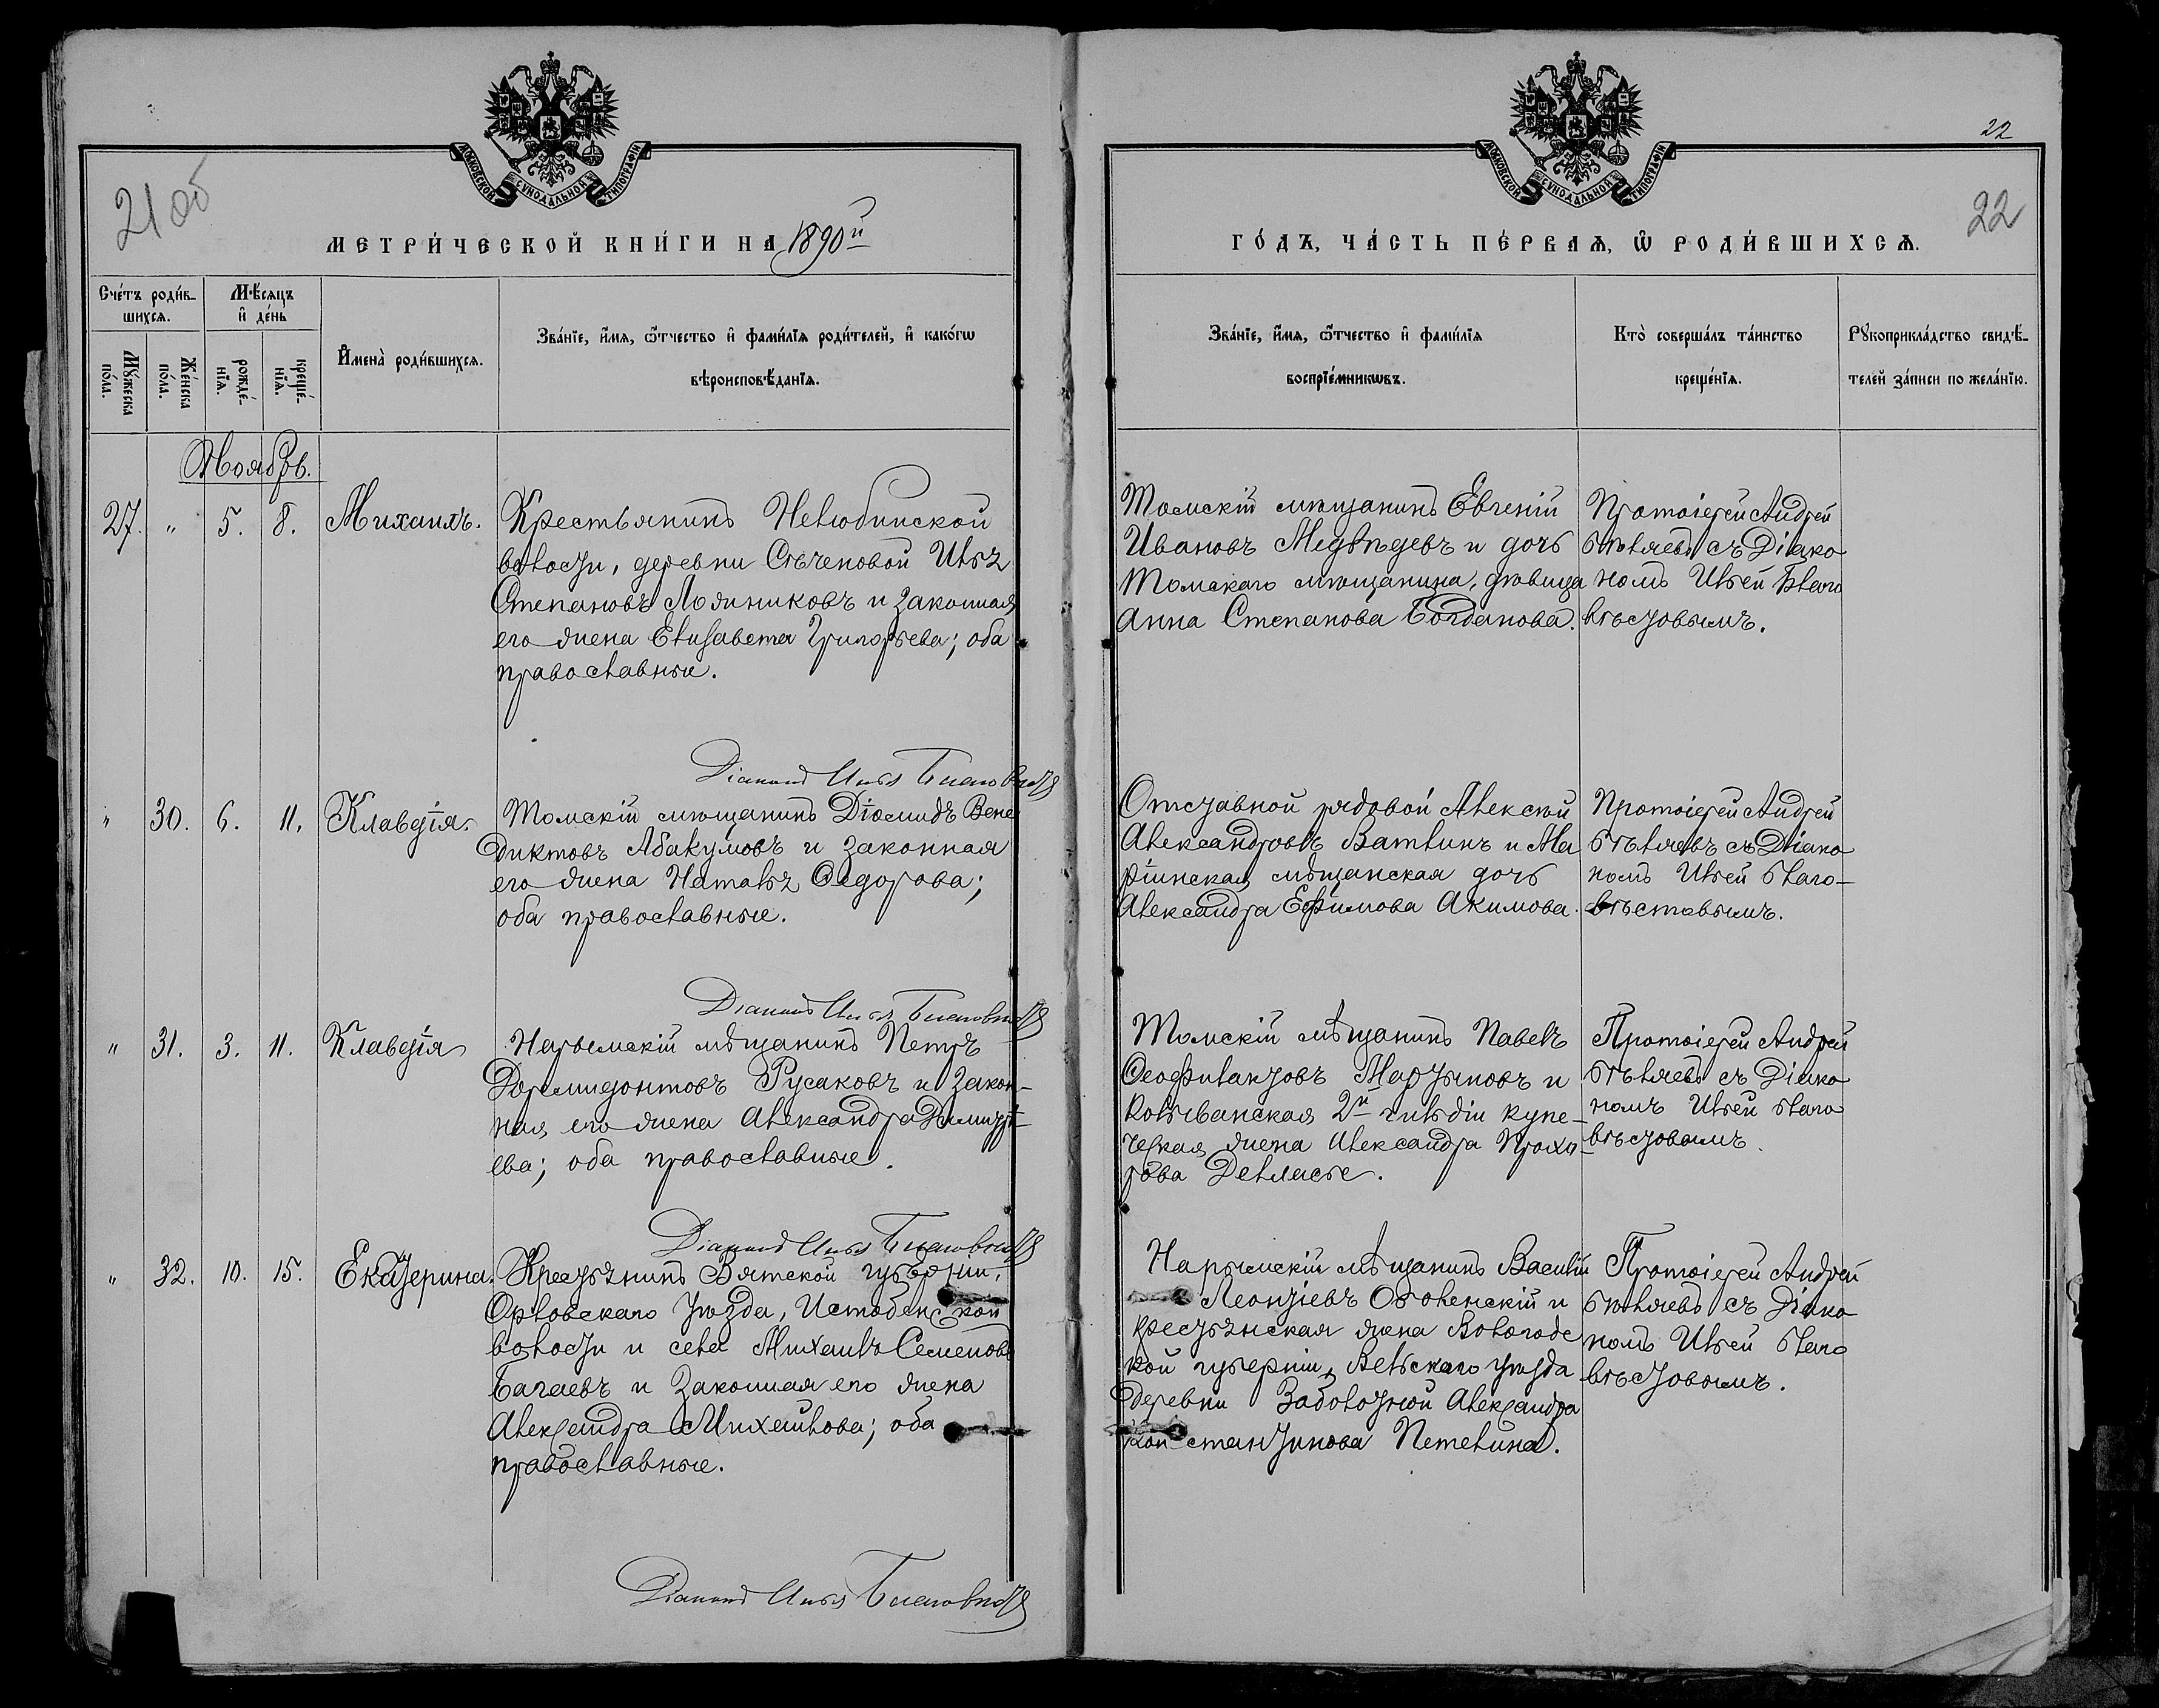 МОСКОВСКОЙ СУНОДАЛЬНОЙ ТИПОГРАФІИ
21 об
МЕТРИ́ЧЕСКОЙ КНИ́ГИ НА 1890й
Сче́тъ роди́в-
шихсѧ.
Мѣ́сѧцъ
и҆ де́нь
Мꙋ́жеска
по́ла.
Же́нска
по́ла.
рожде́-
нїѧ.
креще́-
нїѧ.
И҆мена̀ роди́вшихсѧ.
Зва́нїе, и҆́мѧ, ѻ҆́тчество и҆ фами́лїѧ роди́телей, и҆ како́гѡ
вѣроисповѣ́данїѧ.
Ноябрь.
27. " 5. 8. Михаилъ.
Крестьянинъ Нелюбинской
волости, деревни Сѣченовой Илья
Степановъ Лоянниковъ и законная
его жена Елизавета Григорьева; оба
православные.
Діаконъ Илья Благовѣстовъ
" 30. 6. 11. Клавдія.
Томскій мѣщанинъ Діомидъ Вене
диктовъ Абакумовъ и законная
его жена Наталья Ѳедорова;
оба православные.
Діаконъ Илья Благовѣстовъ
" 31. 3. 11. Клавдія
Нарымскій мѣщанинъ Петръ
Дормидонтовъ Русаковъ и закон-
ная его жена Александра Димитрі-
ева; оба православные.
Діаконъ Илья Благовѣстовъ
" 32. 10. 15. Екатерина.
Крестьянинъ Вятской губерніи,
Орловскаго уѣзда, Истобенской
волости и села Михаилъ Семеновъ
Багаевъ и законная его жена
Александра Михайлова; оба
православные.
Діаконъ Илья Благовѣстовъ
22
МОСКОВСКОЙ СУНОДАЛЬНОЙ ТИПОГРАФІИ
22
ГО́ДЪ, ЧА́СТЬ ПЕ́РВАѦ, Ѡ҆ РОДИ́ВШИХСѦ.
Зва́нїе, и҆́мѧ, ѻ҆́тчество и҆ фами́лїѧ
воспрїе́мникѡвъ.
Кто̀ соверша́лъ та́инство
креще́нїѧ.
Рꙋкоприкла́дство свидѣ́-
телей за́писи по жела́нїю.
Томскій мѣщанинъ Евгеній
Ивановъ Медвѣдевъ и дочь
Томскаго мѣщанина, дѣвица
Анна Степанова Богданова.
Протоіерей Андрей
Бѣляевъ съ Діако
номъ Ильей Благо
вѣстовымъ.
Отставной рядовой Алексѣй
Александровъ Ватлинъ и Ма
ріинская мѣщанская дочь
Александра Ефимова Акимова.
Протоіерей Андрей
Бѣляевъ съ Діако
номъ Ильей Благо-
вѣстовымъ.
Томскій мѣщанинъ Павелъ
Ѳеофилактовъ Мартыновъ и
Колыванская 2й гильдіи купе-
ческая жена Александра Прохо-
рова
Протоіерей Андрей
Бѣляевъ съ Діако
номъ Ильей Благо
вѣстовымъ.
Нарымскій мѣщанинъ Василій
Леонтіевъ Оболенскій и
крестьянская жена Вологодс
кой губерніи, Вельскаго уѣзда
деревни Заболотной Александра
Константинова Петелина.
Протоіерей Андрей
Бѣляевъ съ Діако
номъ Ильей Благо
вѣстовымъ.